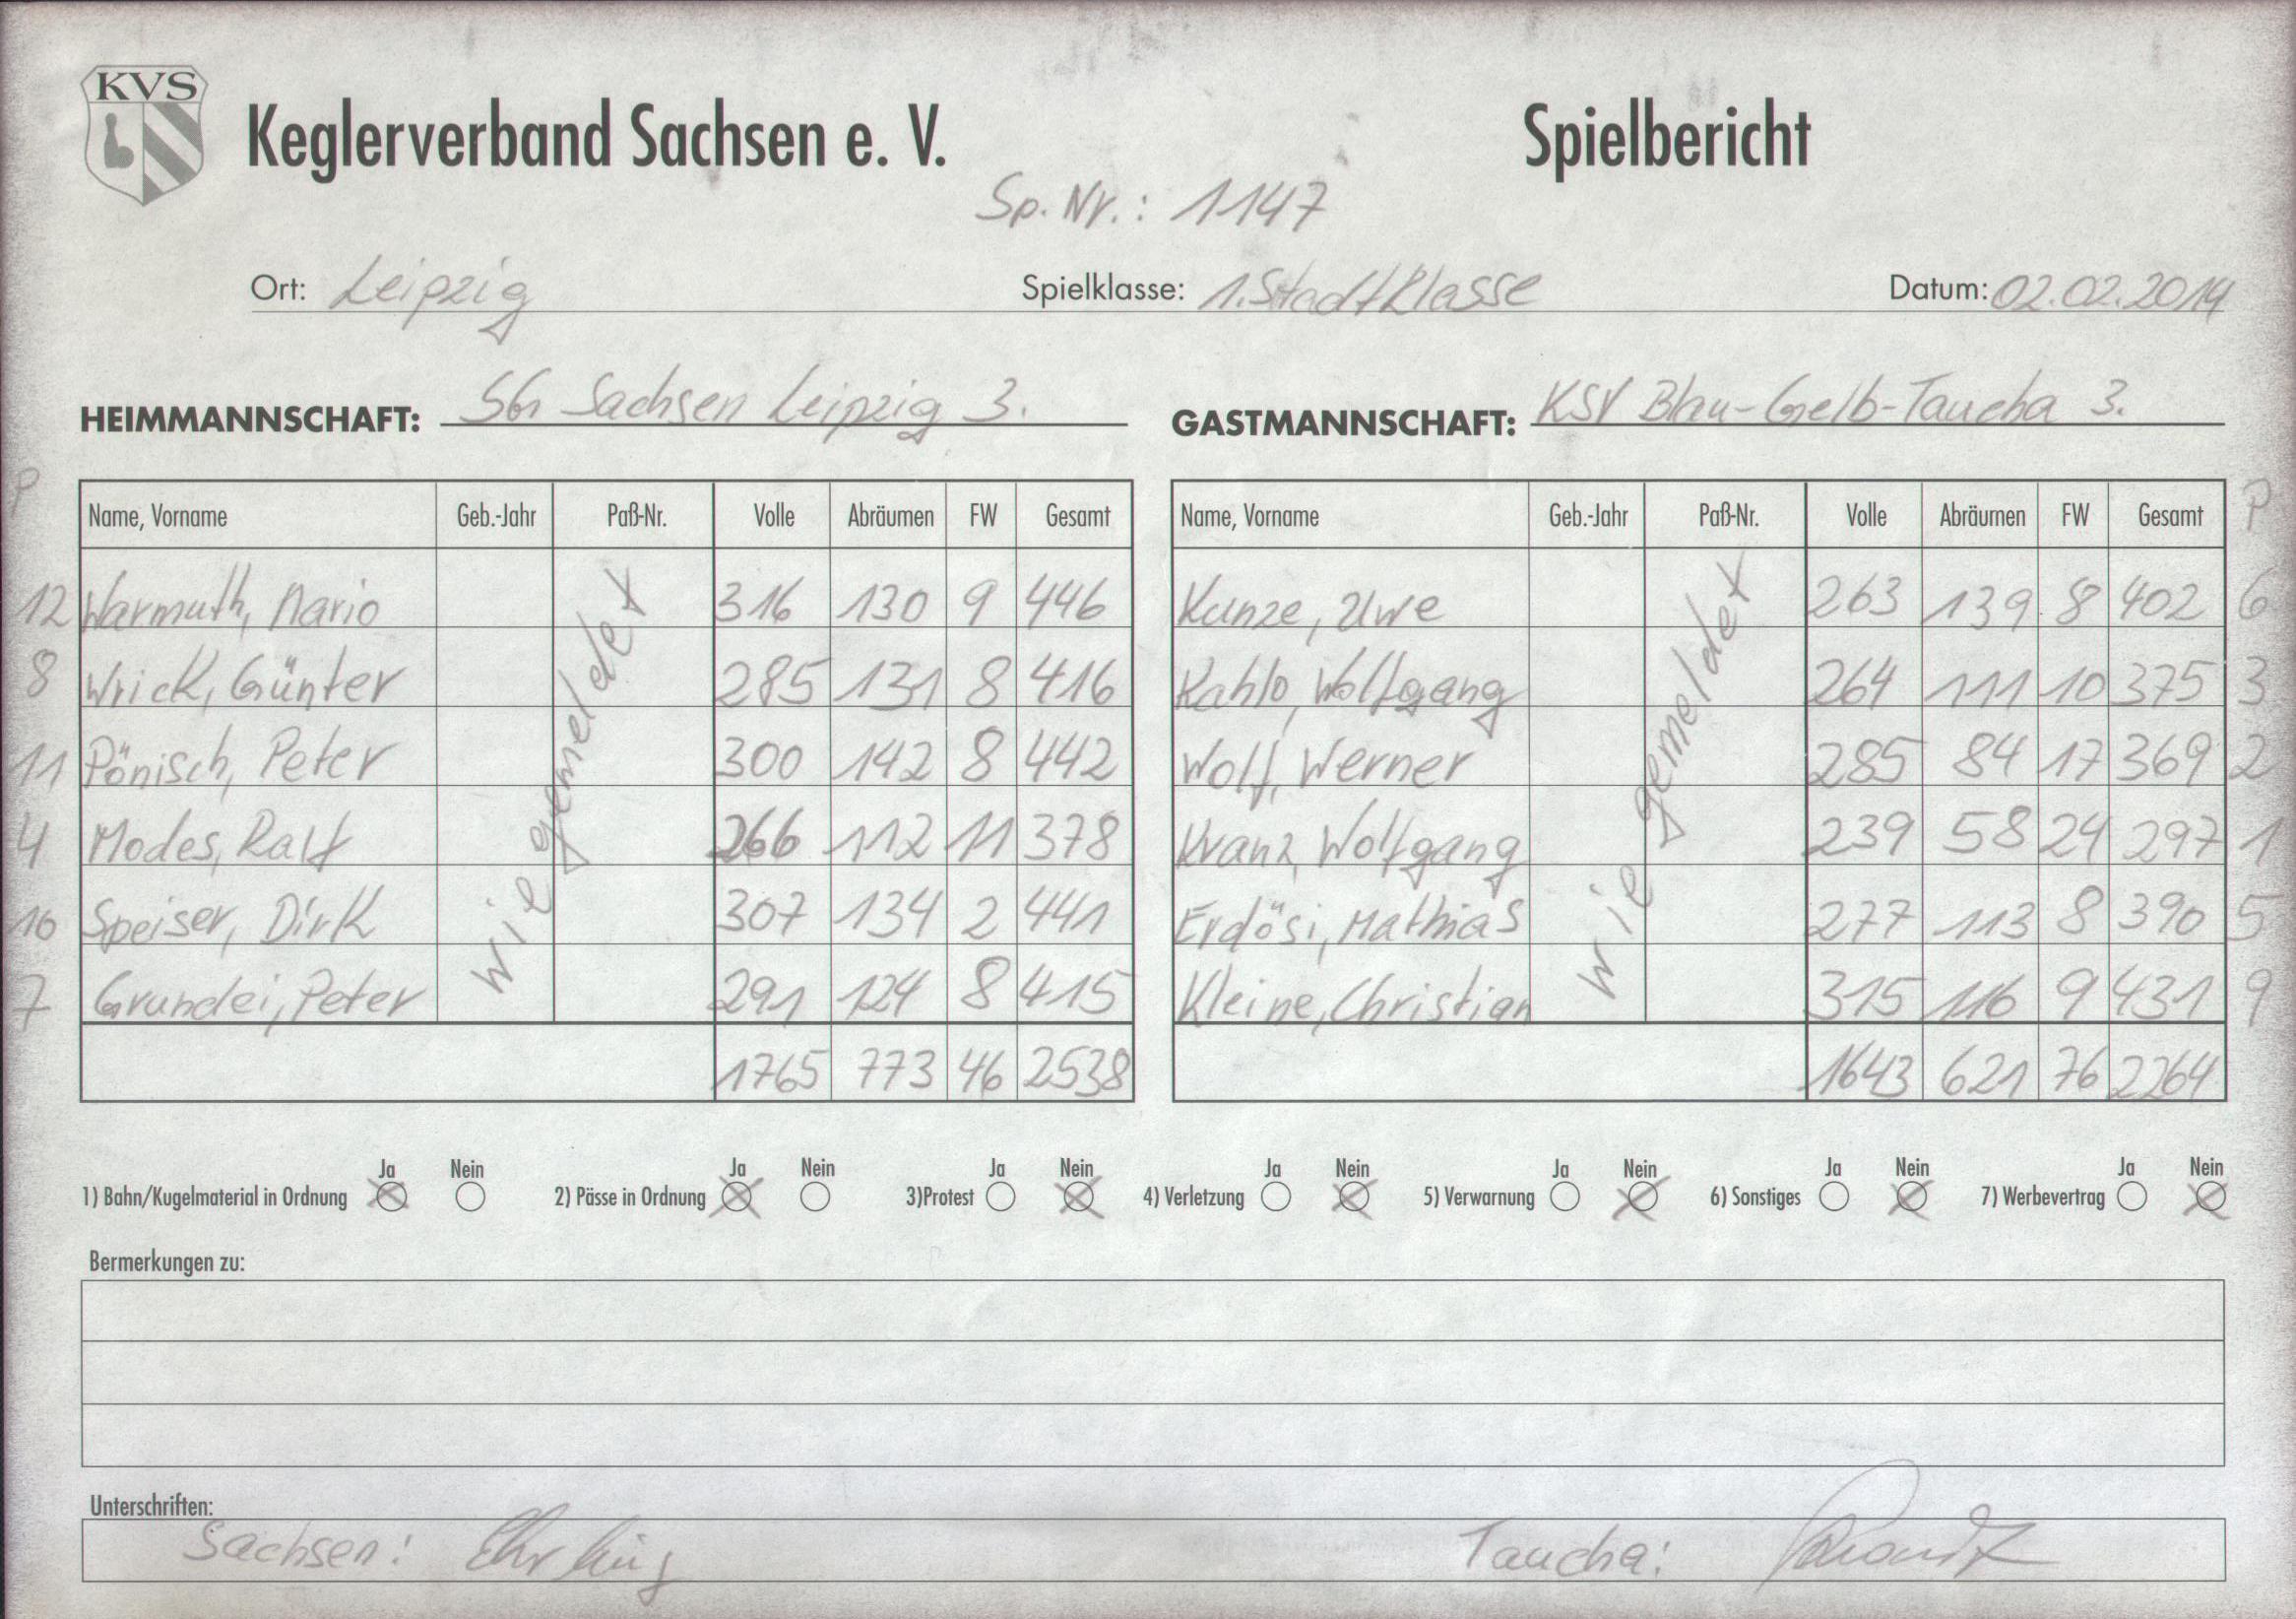 KVS
Keglerverband Sachsen e. V.
Spielbericht
Sp. Nr.: 1147
Ort: Leipzig Spielklasse: 1. Stadtklasse Datum: 02.02.2014
HEIMMANNSCHAFT: SG Sachsen Leipzig 3. GASTMANNSCHAFT: KSV Blau-Gelb-Taucha 3.
P Name, Vorname Geb.-Jahr Paß-Nr. Volle Abräumen FW Gesamt Name, Vorname Geb.-Jahr Paß-Nr. Volle Abräumen FW Gesamt P
12 Warmuth, Mario 316 130 9 446 Kunze, Uwe 263 139 8 402 6
8 Wrick, Günter 285 131 8 416 Kahlo, Wolfgang 264 111 10 375 3
11 Pönisch, Peter 300 142 8 442 Wolf, Werner 285 84 17 369 2
4 Modes, Ralf 266 112 11 378 Kranz, Wolfgang 239 58 24 297 1
10 Speiser, Dirk 307 134 2 441 Erdösi, Mathias 277 113 8 390 5
7 Grundei, Peter 291 124 8 415 Kleine, Christian 315 116 9 431 9
wie gemeldet wie gemeldet
1765 773 46 2538 1643 621 76 2264
Ja Nein Ja Nein Ja Nein Ja Nein Ja Nein Ja Nein Ja Nein
1) Bahn/Kugelmaterial in Ordnung 2) Pässe in Ordnung 3)Protest 4) Verletzung 5) Verwarnung 6) Sonstiges 7) Werbevertrag
Bermerkungen zu:
Unterschriften:
Sachsen: Taucha: